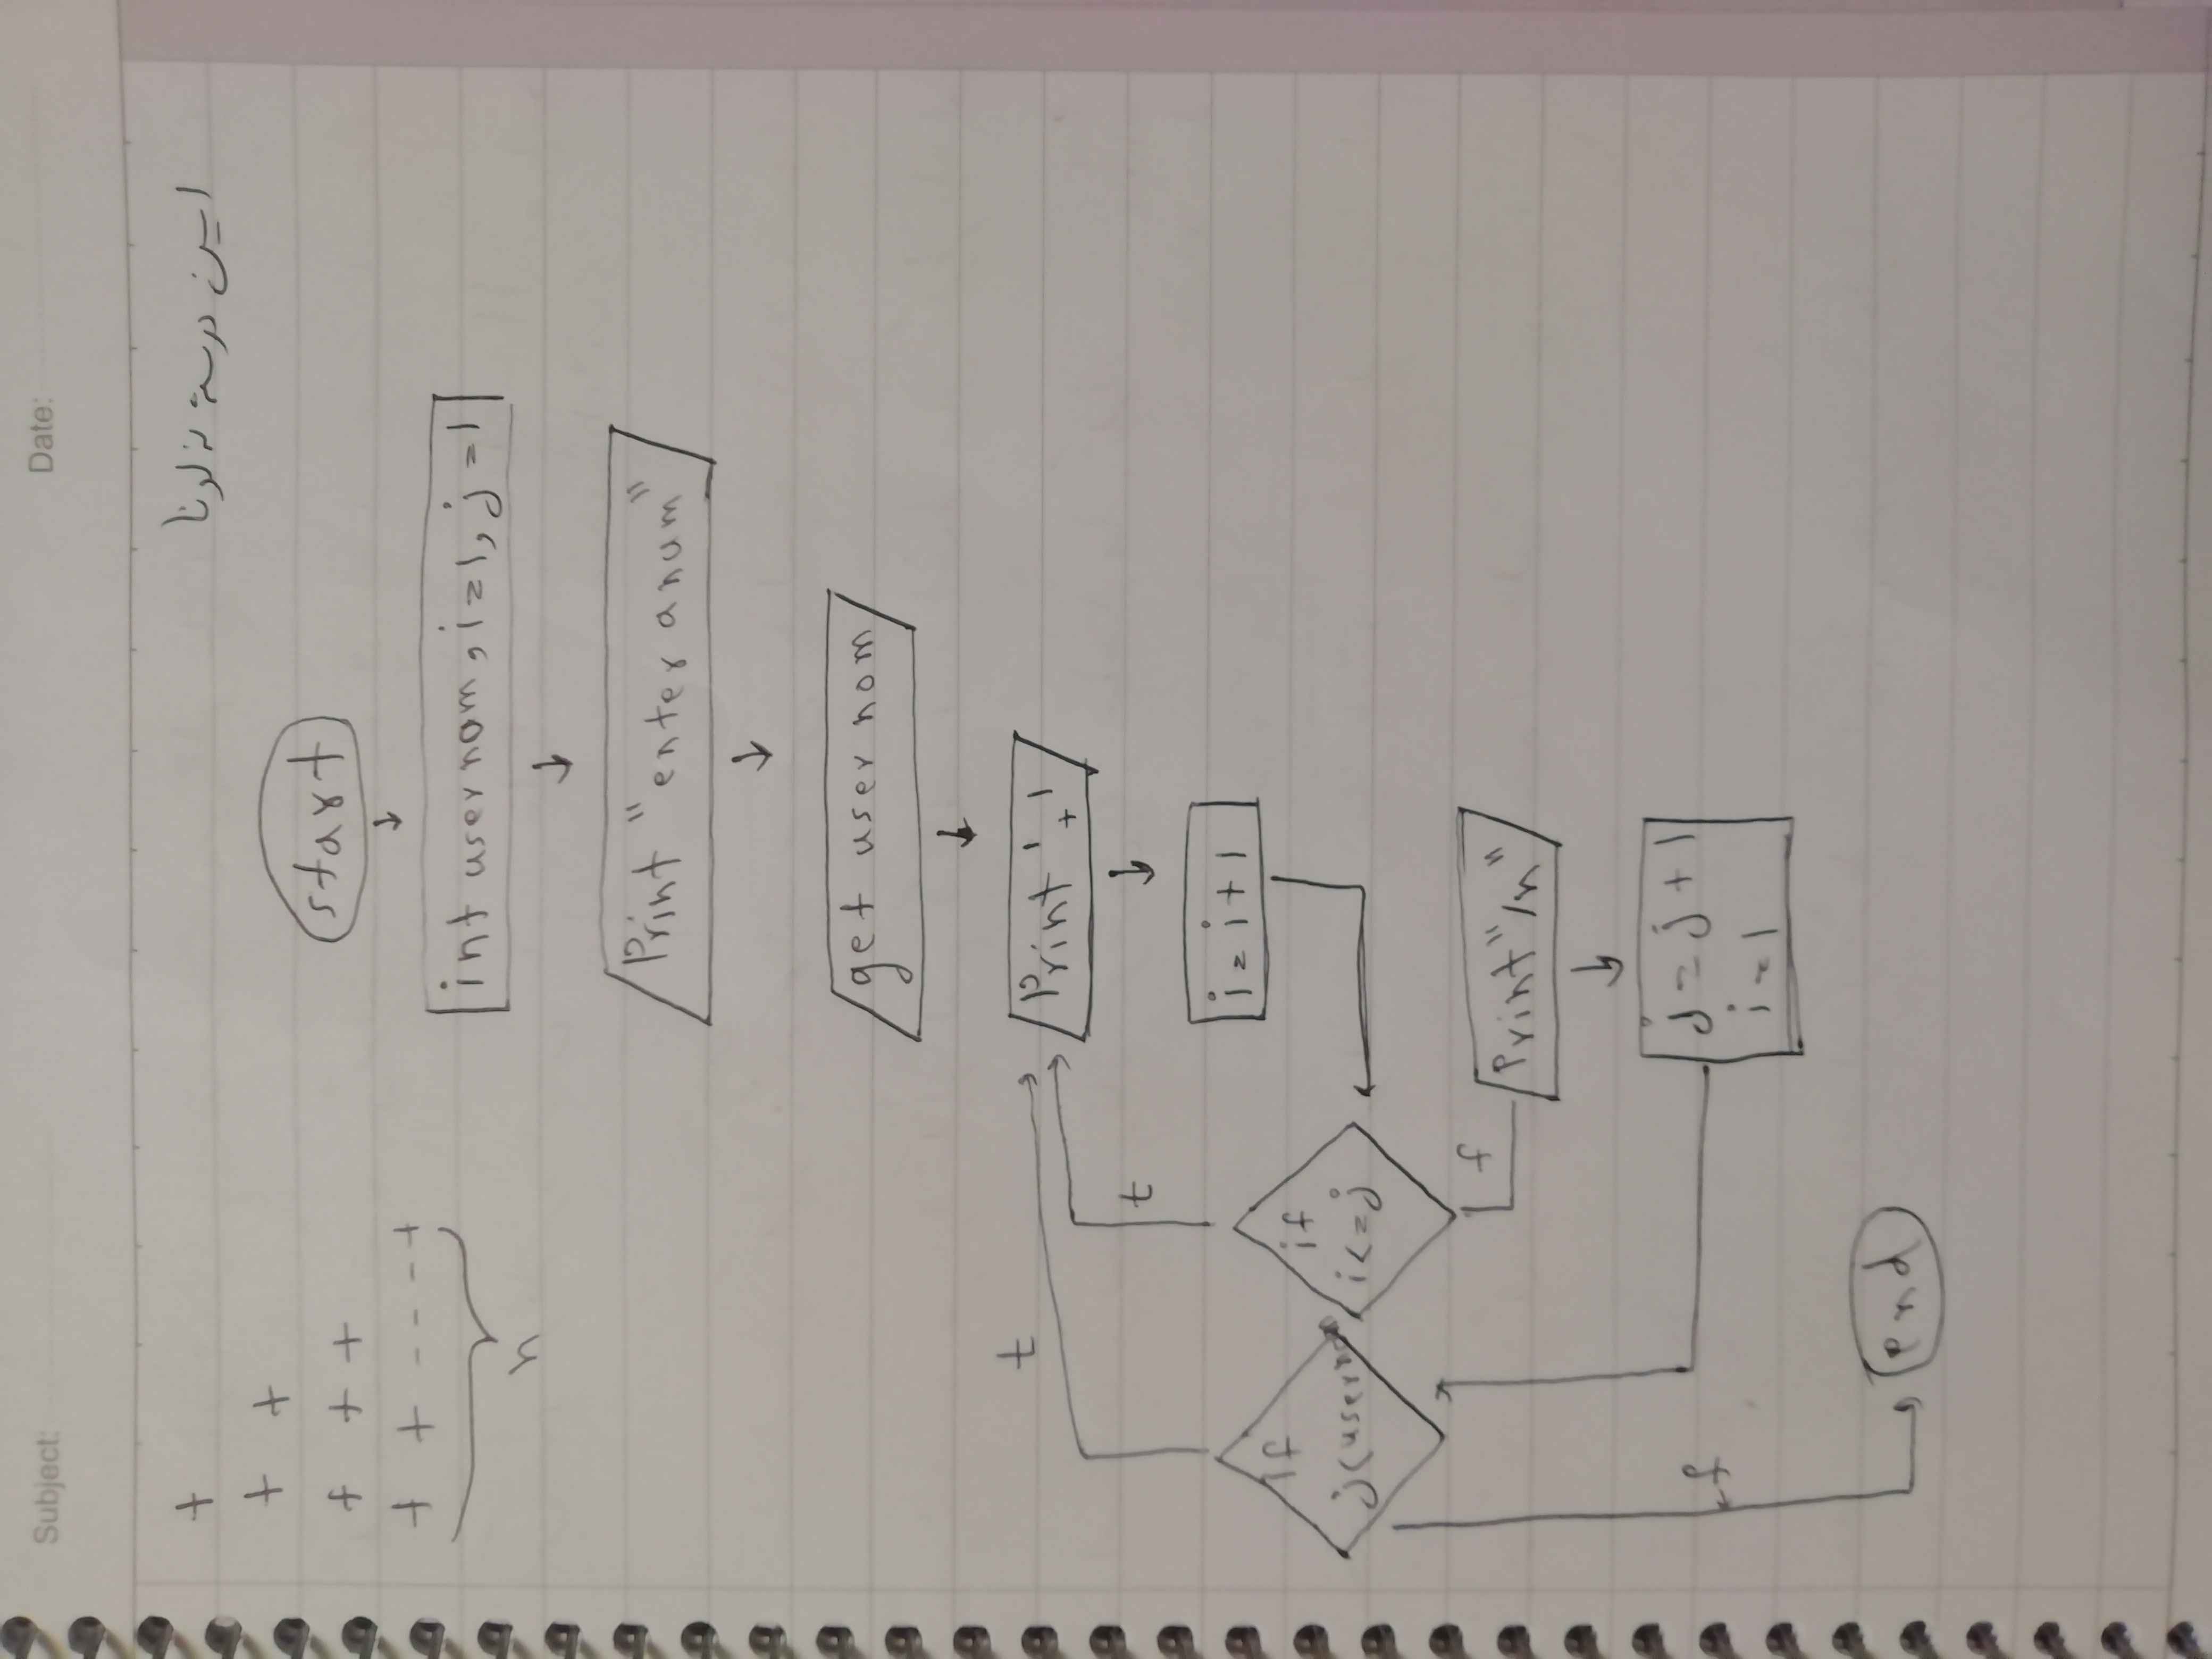 Subject: Date:
+
+ +
+ + +
+ + - - - - +
n
این درسته نه اونا
start
int usernom, i=1, j=1
Print "enter a num"
get user nom
Print '+'
i=i+1
if
i<=j
t
f
Print "/n"
j=j+1
i=1
if
t
f
end